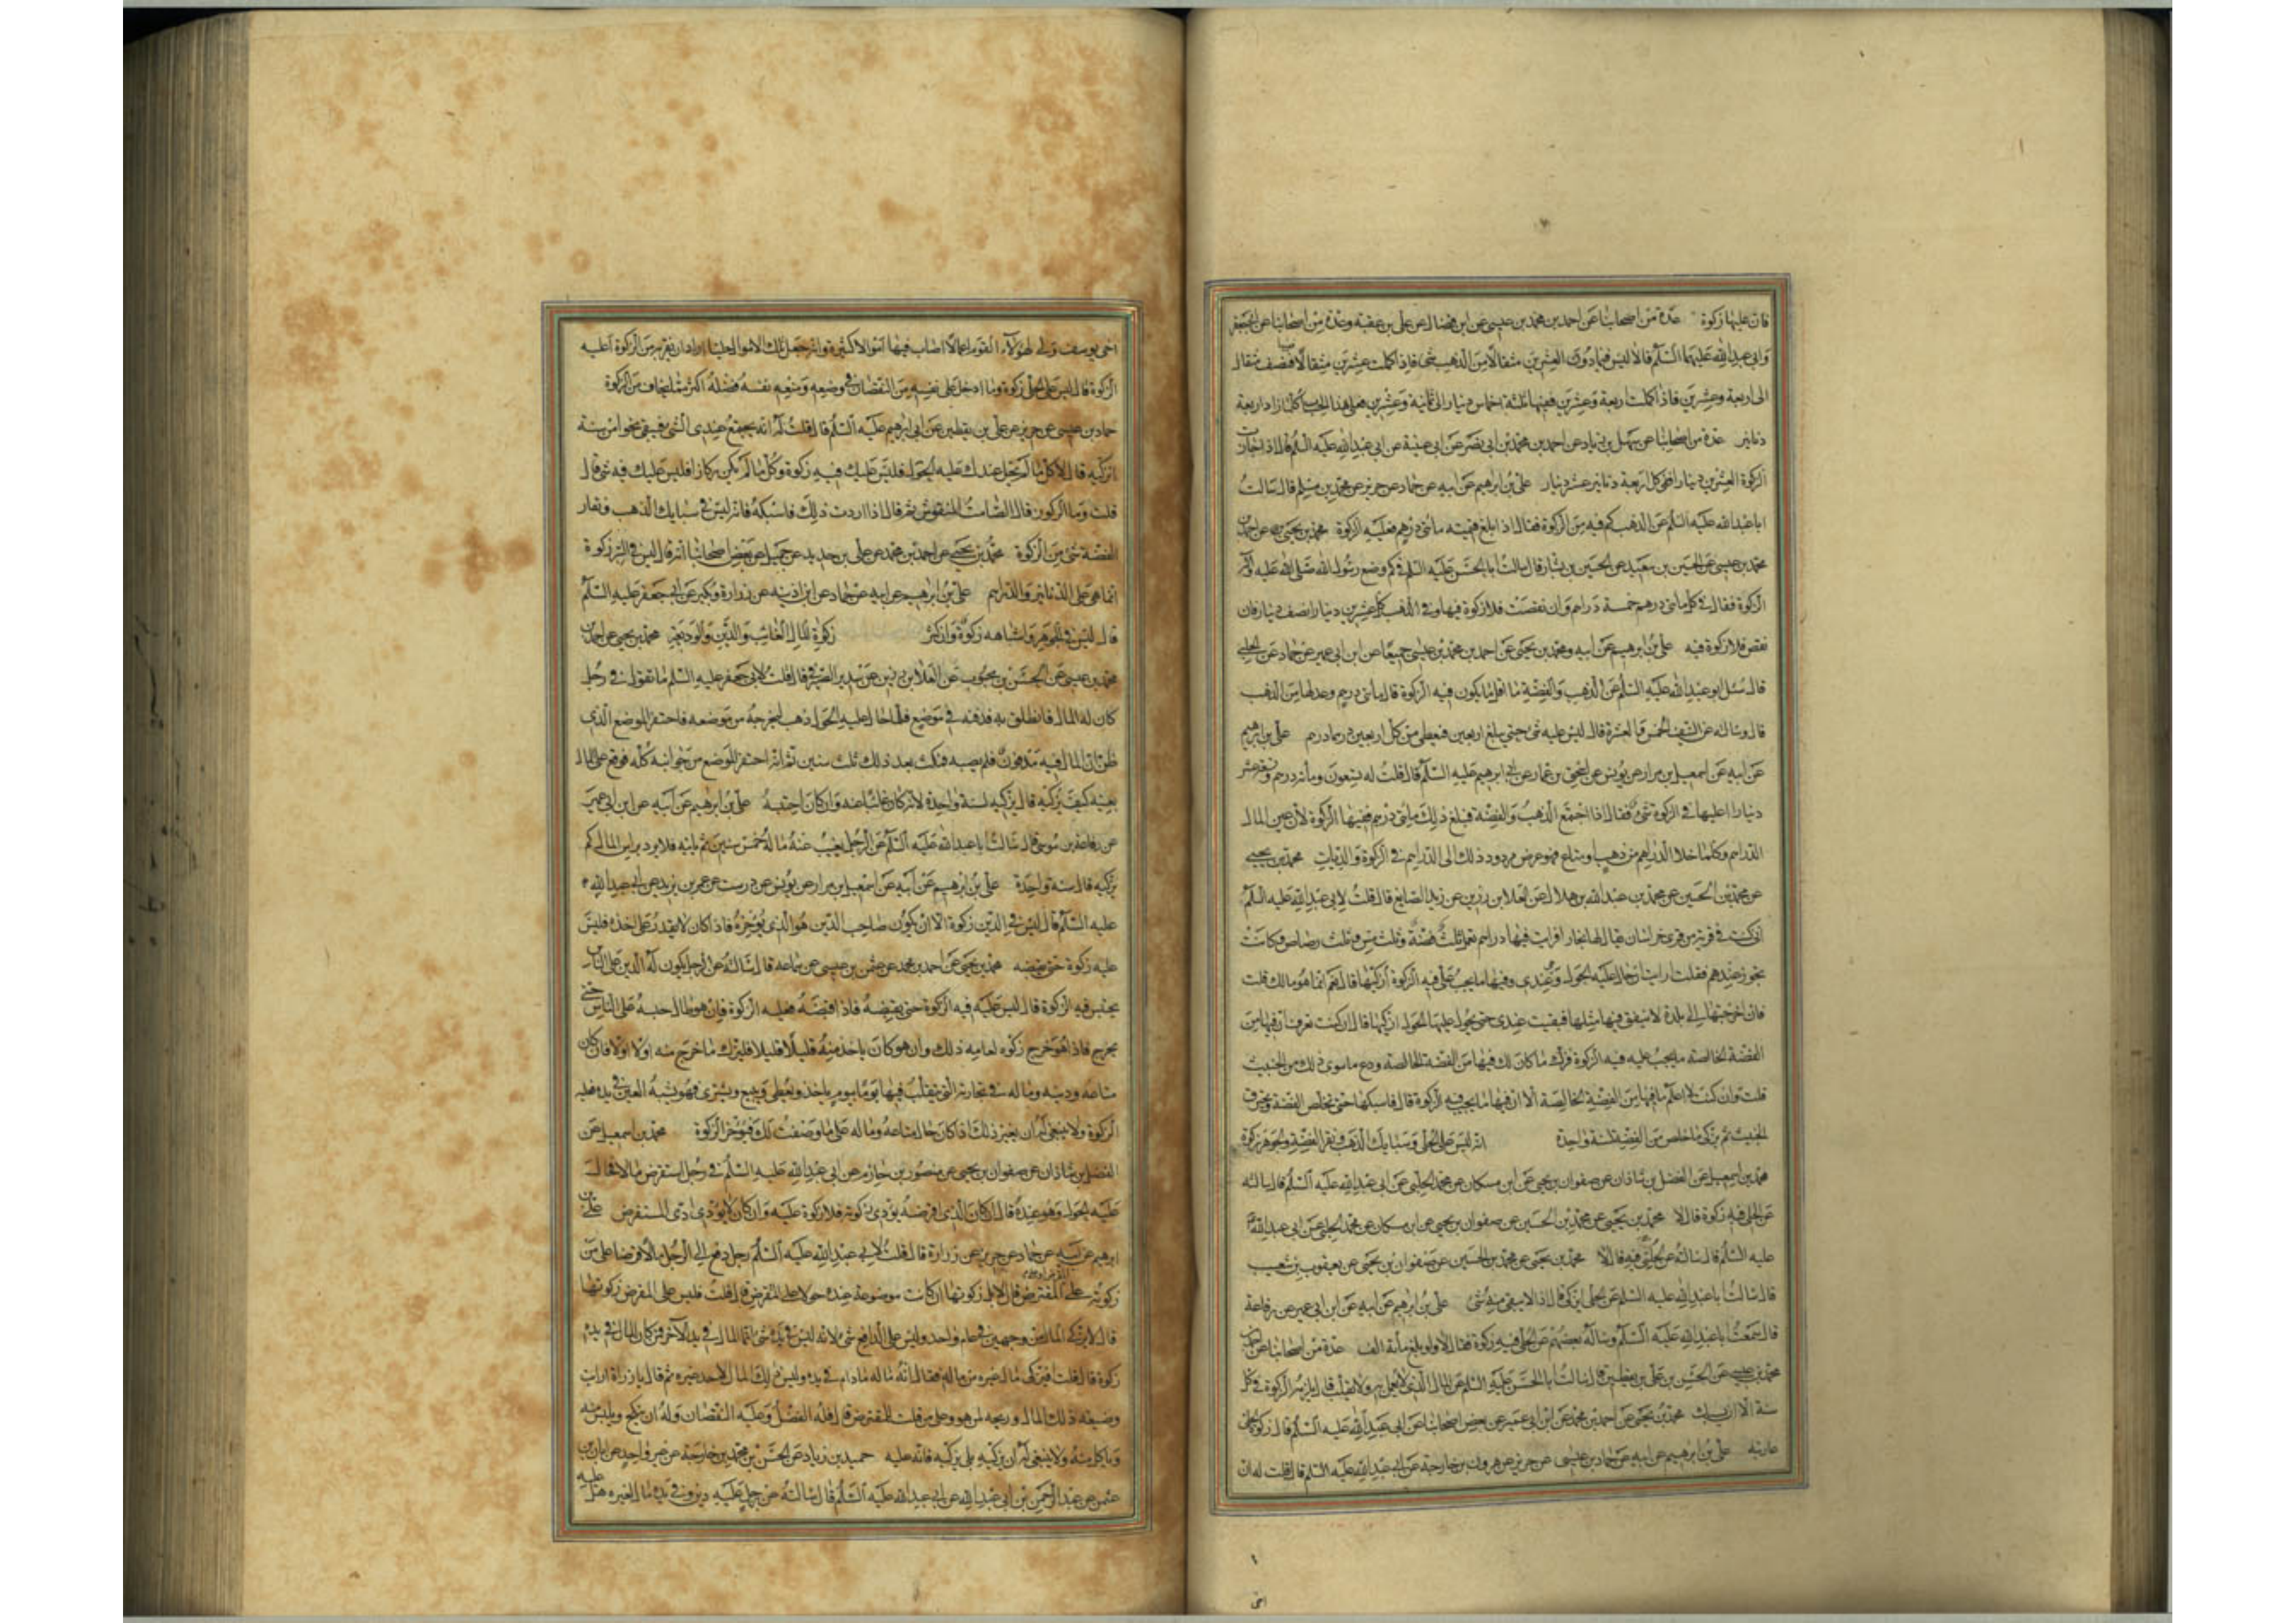 فان عليها زكوة عدة من اصحابنا عن احمد بن محمد بن عيسى عن ابن فضال عن على بن عقبة وعدة من اصحابنا عن ابى جعفر
وابى عبد الله عليهما السلم قالا ليس فيما دون العشرين مثقالا من الذهب شئ فاذا كملت عشرين مثقالا ففيها نصف مثقال
الى اربعة وعشرين فاذا كملت اربعة وعشرين ففيها ثلثة اخماس دينار الى ثمانية وعشرين فعلى هذا الحساب كلما زاد اربعة
دنانير عدة من اصحابنا عن سهل بن زياد عن احمد بن محمد بن ابى نصر عن ابى عيينة عن ابى عبد الله عليه السلم قال اذا جازت
الزكوة العشرين دينارا ففى كل اربعة دنانير عشر دينار على بن ابرهيم عن ابيه عن حماد عن حريز عن محمد بن مسلم قال سالت
ابا عبد الله عليه السلم عن الذهب كم فيه من الزكوة فقال اذا بلغ قيمته مائتى درهم فعليه الزكوة محمد بن يحيى عن احمد بن
محمد بن عيسى عن الحسين بن سعيد عن الحسين بن بشار قال سالت ابا الحسن عليه السلم فى كم وضع رسول الله صلى الله عليه وآله
الزكوة فقال فى كل مائتى درهم خمسة دراهم وان نقصت فلا زكوة فيها وفى الذهب كل عشرين دينارا نصف دينار فان
نقص فلا زكوة فيه على بن ابرهيم عن ابيه ومحمد بن يحيى عن احمد بن محمد بن عيسى جميعا عن ابن ابى عمير عن حماد عن الحلبى
قال سئل ابو عبد الله عليه السلم عن الذهب والفضة ما اقل ما يكون فيه الزكوة قال مأتى درهم وعدلها من الذهب
قال وسالته عن النيف الخمس والعشرة قال ليس عليه شئ حتى يبلغ اربعين فيعطى من كل اربعين درهما درهم على بن ابرهيم
عن ابيه عن اسمعيل بن مرار عن يونس عن اسحق بن عمار عن ابى ابرهيم عليه السلم قال قلت له تسعون ومأته درهم وتسعة عشر
دينارا اعليها فى الزكوة شئ فقال اذا اجتمع الذهب والفضة فبلغ ذلك مائتى درهم ففيها الزكوة لان عين المال
الدراهم وكلما خلا الدراهم من ذهب او متاع فهو عرض مردود ذلك الى الدراهم فى الزكوة والديات محمد بن يحيى
عن محمد بن الحسين عن محمد بن عبد الله بن هلال عن العلا بن رزين عن زيد الصايغ قال قلت لابى عبد الله عليه السلم
انى كنت فى قرية من قرى خراسان يقال لها بخار افرايت فيها دراهم تعمل ثلث فضة وثلث مس وثلث رصاص وكانت
تجوز عندهم فقلت ارايت ان حال عليه الحول وعندى وفيها ما يجب على فيه الزكوة ازكيها قال نعم انما هو مالك قلت
فان اخرجتها الى بلدة لا ينفق فيها مثلها فبقيت عندى حتى يحول عليها الحول ازكيها قال ان كنت تعرف ان فيها من
الفضة الخالصة ما يجب عليه فيه الزكوة فزك ما كان لك فيها من الفضة الخالصة ودع ما سوى ذلك من الخبيث
قلت وان كنت لا اعلم ما فيها من الفضة الخالصة الا ان فيها ما يجب فيه الزكوة قال فاسبكها حتى تخلص الفضة ويحترق
الخبيث ثم يزكى ما خلص من الفضة لسنة واحدة انه ليس على الحلى وسبايك الذهب ونقر الفضة والجوهر زكوة
محمد بن اسمعيل عن الفضل بن شاذان عن صفوان بن يحيى عن ابن مسكان عن محمد الحلبى عن ابى عبد الله عليه السلم قال سالته
عن الحلى فيه زكوة قال لا محمد بن يحيى عن محمد بن الحسين عن صفوان بن يحيى عن ابن مسكان عن محمد الحلبى عن ابى عبد الله
عليه السلم قال سالته عن الحلى فيه قال لا محمد بن يحيى عن محمد بن الحسين عن صفوان بن يحيى عن يعقوب بن شعيب
قال سالت ابا عبد الله عليه السلم عن الحلى ايزكى قال اذا لا يبقى منه شئ على بن ابرهيم عن ابيه عن ابن ابى عمير عن رفاعة
قال سمعت ابا عبد الله عليه السلم وساله بعضهم عن الحلى فيه زكوة فقال لا ولو بلغ مأة الف عدة من اصحابنا عن احمد بن
محمد بن عيسى عن الحسن بن على بن يقطين قال سالت ابا الحسن عليه السلم عن المال الذى لا يعمل به ولا يقلب قال يلزمه الزكوة فى كل
سنة الا ان يسبك محمد بن يحيى عن احمد بن محمد عن ابن ابى عمير عن بعض اصحابنا عن ابى عبد الله عليه السلم قال زكوة الحلى
عاريته على بن ابرهيم عن ابيه عن حماد بن عيسى عن حريز عن هرون بن خارجة عن ابى عبد الله عليه السلم قال قلت له ان
اخى
اخى يوسف ولى لهؤلاء القوم اعمالا اصاب فيها اموالا كثيرة وانه جعل تلك الاموال حليا اراد ان يفر به من الزكوة اعليه
الزكوة قال ليس على الحلى زكوة وما ادخل على نفسه من النقصان فى وضعه ومنعه نفسه فضله اكثر مما يخاف من الزكوة
حماد بن عيسى عن حريز عن على بن يقطين عن ابى ابرهيم عليه السلم قال قلت له انه يجتمع عندى الشئ فيبقى نحوا من سنة
انزكيه قال لا كل ما لم يحل عندك عليه الحول فليس عليك فيه زكوة وكل ما لم يكن ركازا فليس عليك فيه شئ قال
قلت وما الركون قال الصامت المنقوش ثم قال اذا اردت ذلك فاسبكه فانه ليس فى سبايك الذهب ونقار
الفضة شئ من الزكوة محمد بن يحيى عن احمد بن محمد عن على بن حديد عن جميل عن بعض اصحابنا انه قال ليس فى التبر زكوة
انما هى على الدنانير والدراهم على بن ابرهيم عن ابيه عن حماد عن ابن اذينه عن زرارة وبكير عن ابى جعفر عليه السلم
قال ليس فى الجوهر واشباهه زكوة وان كثر زكوة المال الغائب والدين والوديعة محمد بن يحيى عن احمد بن
محمد بن عيسى عن الحسن بن محبوب عن العلا بن رزين عن سدير الصيرفى قال قلت لابى جعفر عليه السلم ما تقول فى رجل
كان له المال فانطلق به فدفنه فى موضع فلما حال عليه الحول ذهب ليخرجه من موضعه فاحتفر الموضع الذى
ظن ان المال فيه مدفون فلم يصبه فمكث بعد ذلك ثلث سنين ثم انه احتفر الموضع من جوانبه كله فوقع على المال
بعينه كيف يزكيه قال يزكيه لسنة واحدة لانه كان غائبا عنه وان كان احتبسه على بن ابرهيم عن ابيه عن ابن ابى عمير
عن رفاعة بن موسى قال سالت ابا عبد الله عليه السلم عن الرجل يغيب عنه ماله خمس سنين ثم ياتيه فلا يرد راس المال كم
يزكيه قال سنة واحدة على بن ابرهيم عن ابيه عن اسمعيل بن مرار عن يونس عن درست عن عمر بن يزيد عن ابى عبد الله
عليه السلم قال ليس فى الدين زكوة الا ان يكون صاحب الدين هو الذى يؤخره فاذا كان لا يقدر على اخذه فليس
عليه زكوة حتى يقبضه محمد بن يحيى عن احمد بن محمد عن عثمن بن عيسى عن سماعه قال سالته عن الرجل يكون له الدين على الناس
يحتبس فيه الزكوة قال ليس عليه فيه الزكوة حتى يقبضه فاذا قبضه فعليه الزكوة فان هو طال حبسه على الناس حتى
يخرج فاذا هو خرج زكوه لعامه ذلك وان هو كان ياخذ منه قليلا قليلا فليزك ما خرج منه اولا اولا فان كان
متاعه ودينه وماله فى تجارته التى يتقلب فيها يوما بيوم ياخذ ويعطى ويبيع ويشترى فهو يشبه العين فى يده فعليه
الزكوة ولا ينبغى له ان يغير ذلك اذا كان حال متاعه وماله على ما وصفت لك فيؤخر الزكوة محمد بن اسمعيل عن
الفضل بن شاذان عن صفوان بن يحيى عن منصور بن حازم عن ابى عبد الله عليه السلم فى رجل استقرض مالا فحال
عليه الحول وهو عنده قال ان كان الذى اقرضه يؤدى زكوته فلا زكوة عليه وان كان لا يؤدى ادى المستقرض على بن
ابرهيم عن ابيه عن حماد عن حريز عن زرارة قال قلت لابى عبد الله عليه السلم رجل دفع الى الرجل مالا قرضا على من
زكوته على المقترض قال لا بل زكوتها ان كانت موضوعة عنده حولا على المقترض قال قلت فليس على المقرض زكوتها
قال لا يزكى المال من وجهين فى عام واحد وليس على الدافع شئ لانه ليس فى يده شئ انما المال فى يد الآخر فمن كان المال فى يده
زكوة قال قلت افيزكى مال غيره من ماله فقال انه ماله ما دام فى يده وليس ذلك المال لاحد غيره ثم قال يا زرارة ارايت
وضيعة ذلك المال وربحه لمن هو وعلى من قلت للمقترض قال فله الفضل وعليه النقصان وله ان ينكح ويلبس منه
وياكل منه ولا ينبغى له ان يزكيه بلى يزكيه فانه عليه حميد بن زياد عن الحسن بن محمد بن خارجة عن غير واحد عن ابان بن
عثمن عن عبد الرحمن بن ابى عبد الله عن ابى عبد الله عليه السلم قال سالته عن رجل عليه دين وفى يده مال لغيره هل عليه